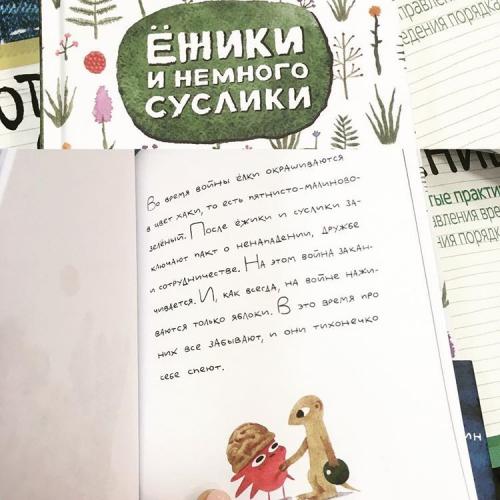 ЁЖИКИ
И НЕМНОГО
СУСЛИКИ
Во время войны ёлки окрашиваются
в цвет хаки, то есть пятнисто-малиново-
зелёный. После ёжики и суслики за-
ключают пакт о ненападении, дружбе
и сотрудничестве. На этом война закан-
чивается. И, как всегда, на войне нажи-
ваются только яблоки. В это время про
них все забывают, и они тихонечко
себе спеют.
тые практи